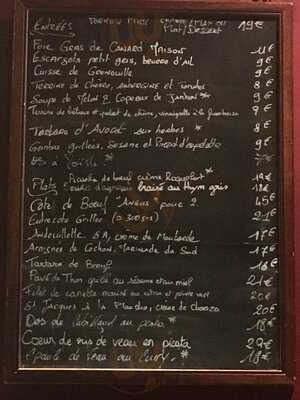 ENTRÉES
Plat/Dessert 19€
Foie Gras de CANARD MAISON 11€
Escargots petit gris, beurre d'ail 9€
Cuisse de Grenouille 9€
Terrine de Chèvre, aubergine et Tomates 8€
Soupe de Melon & Copeaux de Jambon * 9€
Terrine de et de chèvre, vinaigrette à la framboise 9€
Tartare d'Avocat aux herbes * 8€
Gambas grillées, Sésame et Piment d'espelette 9€
7€
Plats Picanha de bœuf crème Roquefort * 19€
Souris d'agneau braisé au thym gris 18€
Côte de Bœuf "Angus" pour 2 45€
Entrecôte Grillée (0.300grs) 21€
Andouillette 5A, crème de Moutarde 17€
Araignée de Cochon, Marinade du Sud 17€
Tartare de Bœuf 16€
Pavé de Thon grillé au sésame et au miel 21€
Filet de canette au citron et poivre vert 20€
St Jacques à la Plancha, crème de Chorizo 20€
Dos de cabillaud au pesto * 18€
Cœur de ris de veau en picata 29€
Épaule de veau au curry. * 18€